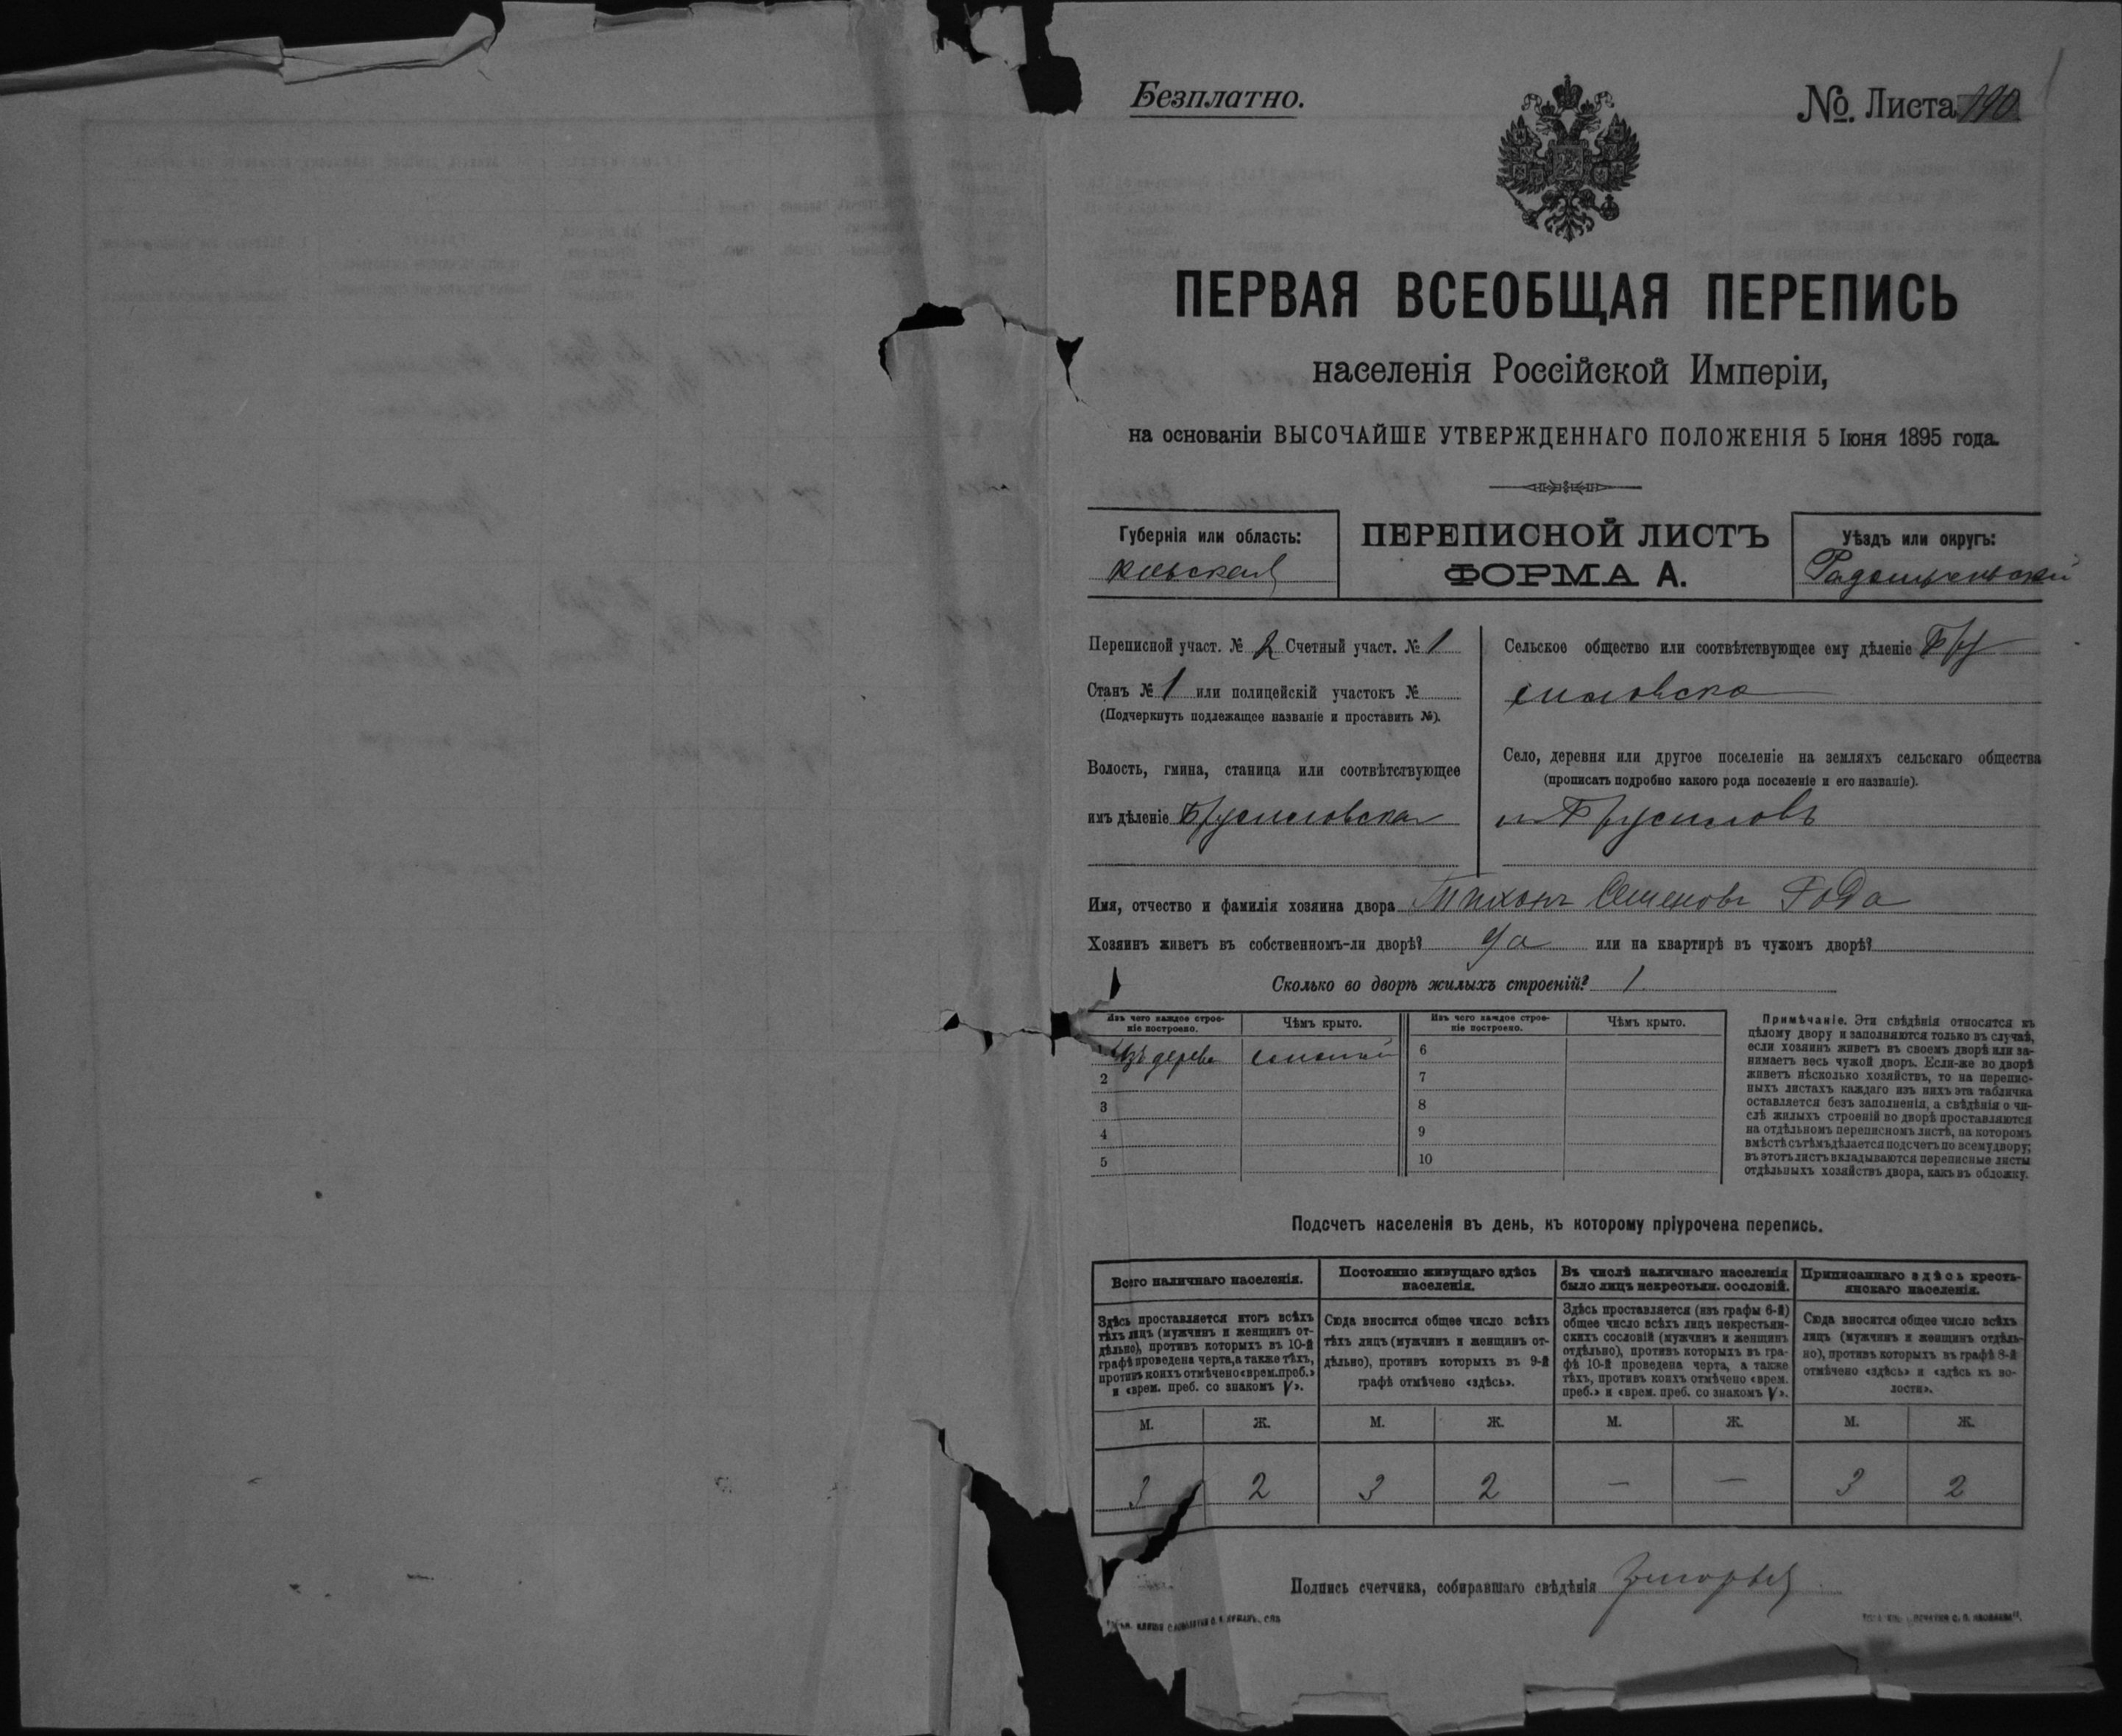 Безплатно.
№. Листа 110
ПЕРВАЯ ВСЕОБЩАЯ ПЕРЕПИСЬ
населенія Россійской Имперіи,
на основаніи ВЫСОЧАЙШЕ УТВЕРЖДЕННАГО ПОЛОЖЕНІЯ 5 Іюня 1895 года.
Губернія или область:
Кіевская
ПЕРЕПИСНОЙ ЛИСТЪ
ФОРМА А.
Уѣздъ или округъ:
Радомысльскій
Переписной участ. № 2 Счетный участ. № 1
Станъ № 1 или полицейскій участокъ №
(Подчеркнуть подлежащее названіе и проставить №).
Волость, гмина, станица или соотвѣтствующее
имъ дѣленіе Брусиловская
Сельское общество или соотвѣтствующее ему дѣленіе Бру
силовско
Село, деревня или другое поселеніе на земляхъ сельскаго общества
(прописать подробно какого рода поселеніе и его названіе).
м Брусиловъ
Имя, отчество и фамилія хозяина двора Тихонъ Семеновъ
Хозяинъ живетъ въ собственномъ-ли дворѣ? да или на квартирѣ въ чужомъ дворѣ?
Сколько во дворѣ жилыхъ строеній? 1
Изъ чего каждое строе-
ніе построено.
Чѣмъ крыто.
Изъ чего каждое строе-
ніе построено.
Чѣмъ крыто.
Изъ дерева
6
2
7
3
8
4
9
5
10
Примѣчаніе. Эти свѣдѣнія относятся къ
цѣлому двору и заполняются только въ случаѣ,
если хозяинъ живетъ въ своемъ дворѣ или за-
нимаетъ весь чужой дворъ. Если-же во дворѣ
живетъ нѣсколько хозяйствъ, то на перепис-
ныхъ листахъ каждаго изъ нихъ эта табличка
оставляется безъ заполненія, а свѣдѣнія о чи-
слѣ жилыхъ строеній во дворѣ проставляются
на отдѣльномъ переписномъ листѣ, на которомъ
вмѣстѣ съ тѣмъ дѣлается подсчетъ по всему двору;
въ этотъ листъ вкладываются переписные листы
отдѣльныхъ хозяйствъ двора, какъ въ обложку.
Подсчетъ населенія въ день, къ которому пріурочена перепись.
Всего наличнаго населенія.
Здѣсь проставляется итогъ всѣхъ
тѣхъ лицъ (мужчинъ и женщинъ от-
дѣльно), противъ которыхъ въ 10-й
графѣ проведена черта, а также тѣхъ,
противъ коихъ отмѣчено «врем. преб.»
и «врем. преб. со знакомъ V».
Постоянно живущаго здѣсь
населенія.
Сюда вносится общее число всѣхъ
тѣхъ лицъ (мужчинъ и женщинъ от-
дѣльно), противъ которыхъ въ 9-й
графѣ отмѣчено «здѣсь».
Въ числѣ наличнаго населенія
было лицъ некрестьян. сословій.
Здѣсь проставляется (изъ графы 6-й)
общее число всѣхъ лицъ некрестьян-
скихъ сословій (мужчинъ и женщинъ
отдѣльно), противъ которыхъ въ гра-
фѣ 10-й проведена черта, а также
тѣхъ, противъ коихъ отмѣчено «врем.
преб.» и «врем. преб. со знакомъ V».
Приписаннаго здѣсь кресть-
янскаго населенія.
Сюда вносится общее число всѣхъ
лицъ (мужчинъ и женщинъ отдѣль-
но), противъ которыхъ въ графѣ 8-й
отмѣчено «здѣсь» и «здѣсь къ во-
лости».
М. Ж. М. Ж. М. Ж. М. Ж.
3 2 3 2 — — 3 2
Подпись счетчика, собиравшаго свѣдѣнія